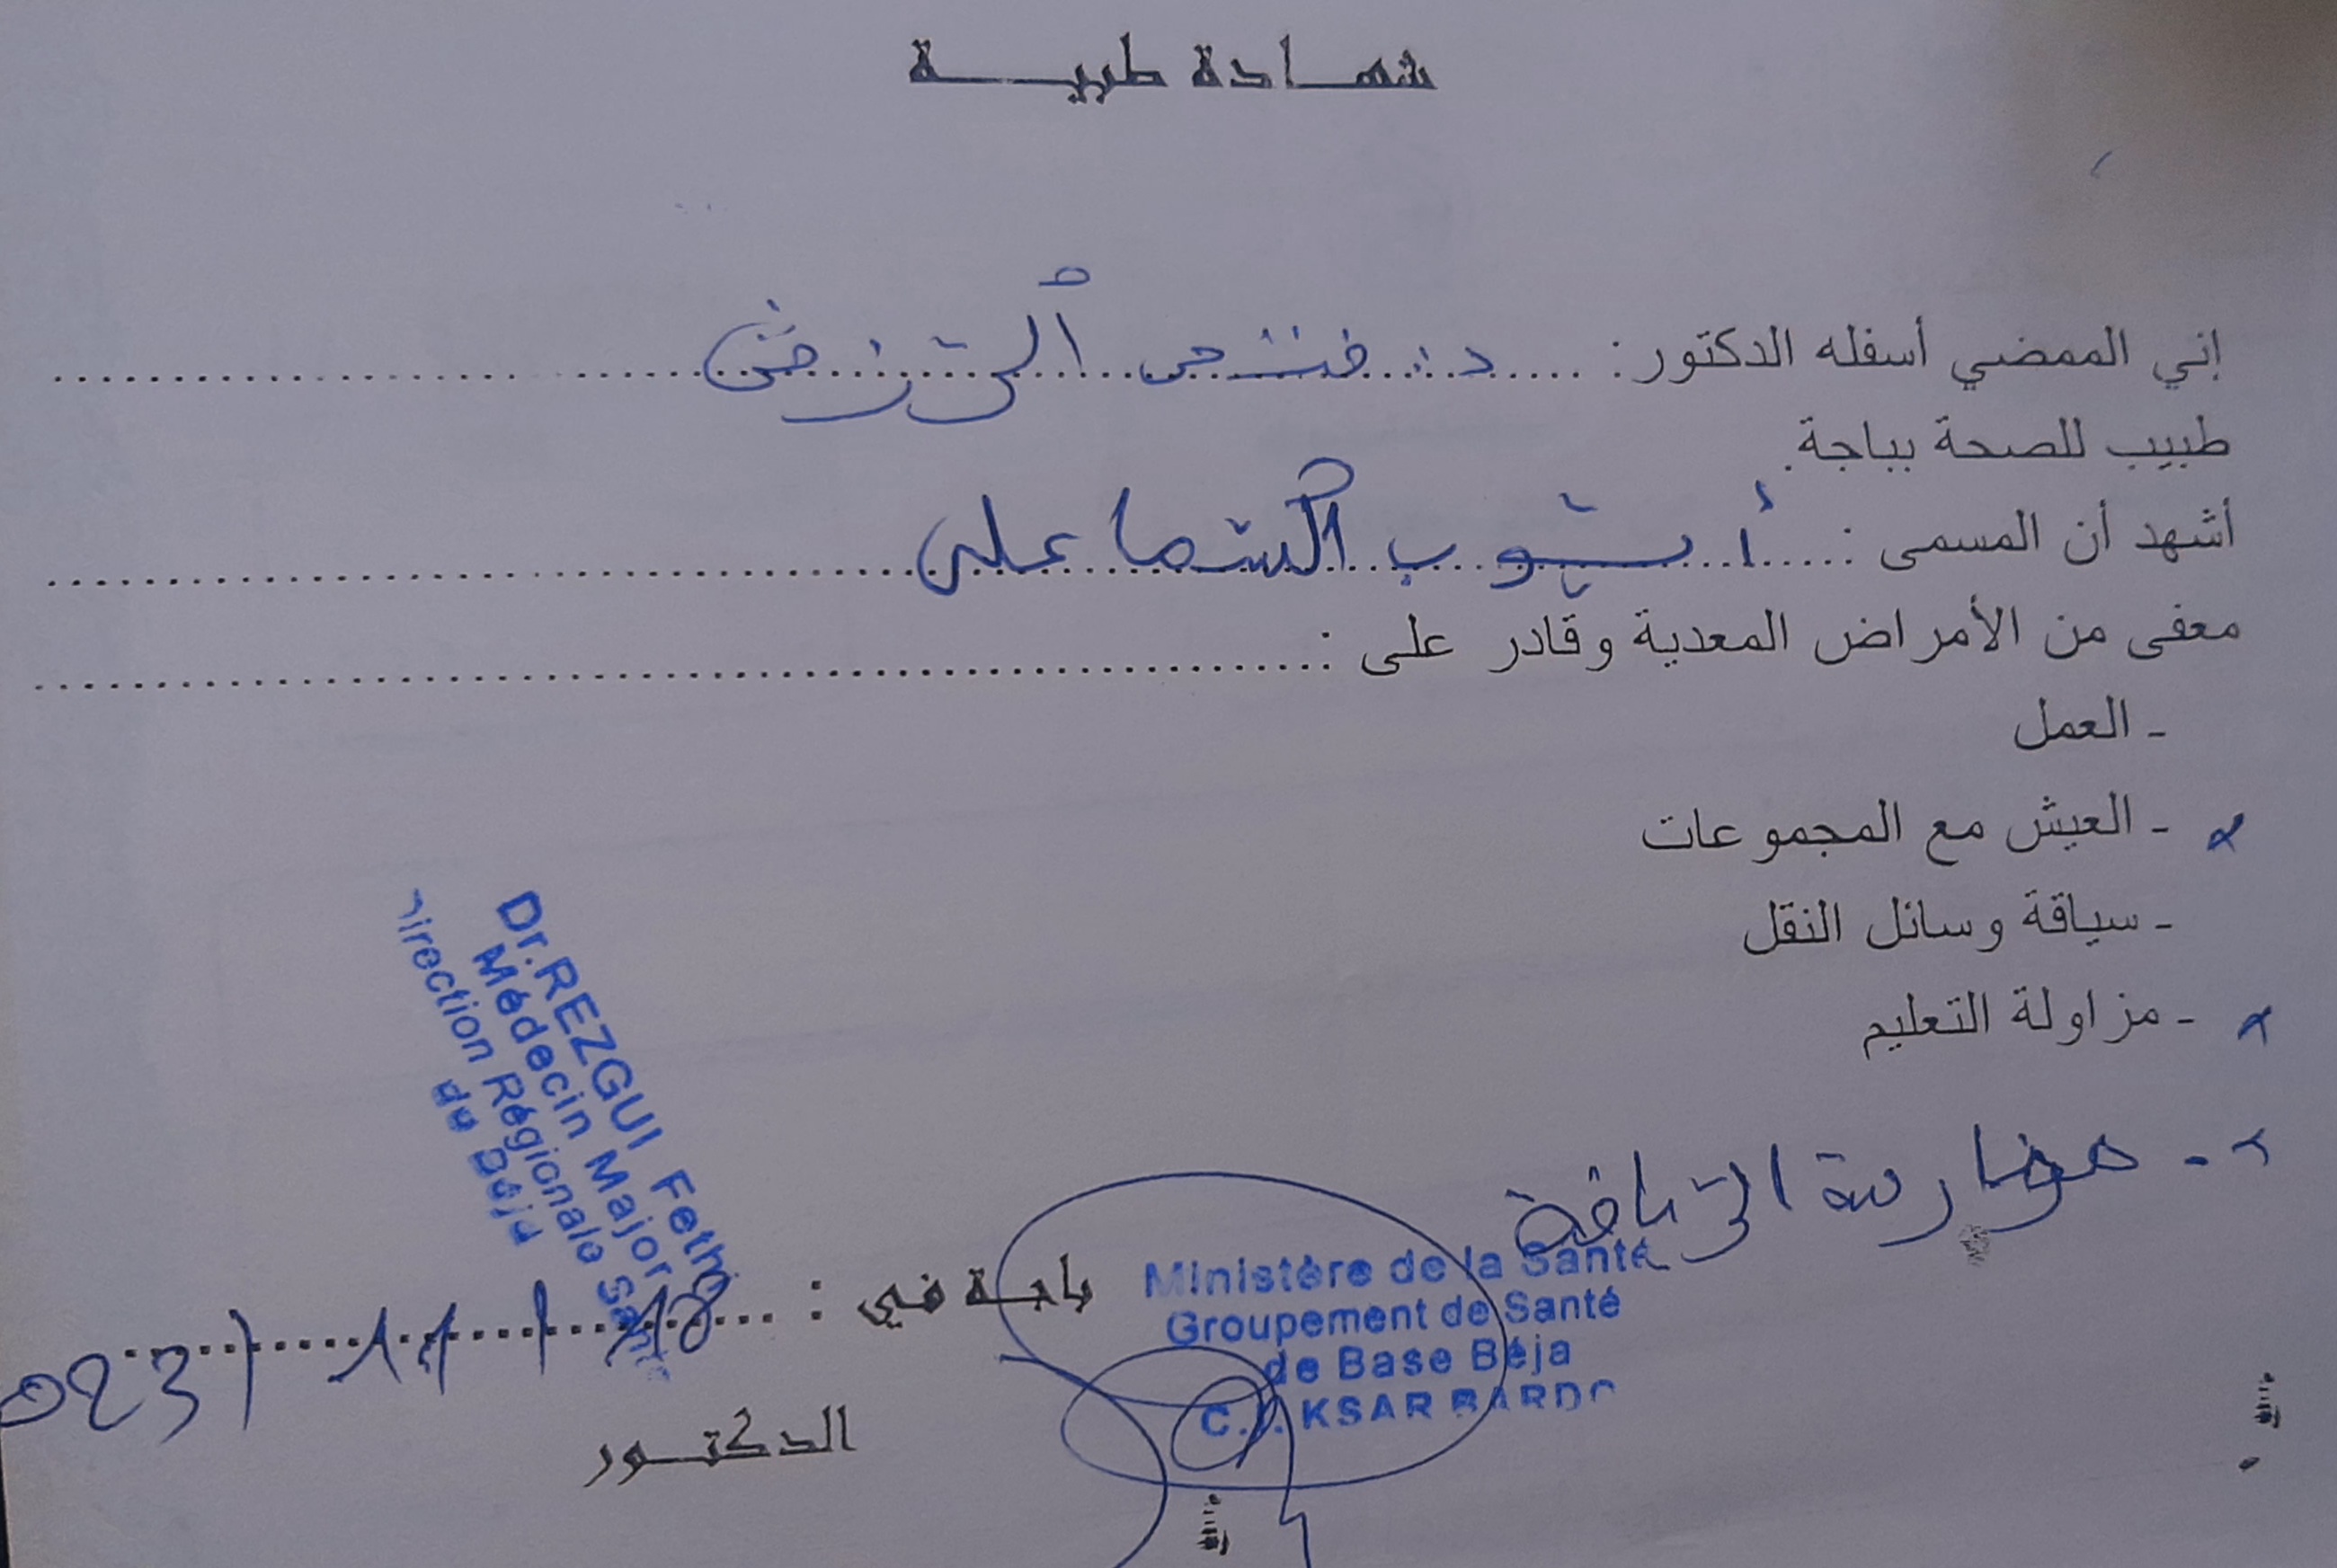 شهادة طبية
إني الممضي أسفله الدكتور: د. فتحي الرزقي
طبيب للصحة بباجة.
أشهد أن المسمى : أيوب السماعلي
معفى من الأمراض المعدية وقادر على :
- العمل
x - العيش مع المجموعات
- سياقة وسائل النقل
x - مزاولة التعليم
x - ممارسة الرياضة
Dr. REZGUI Feth
Médecin Major
irection Régionale Sant
de Béja
باجة في : 18 / 11 / 023
Ministère de la Santé
Groupement de Santé
de Base Béja
KSAR BARDO
الدكتور